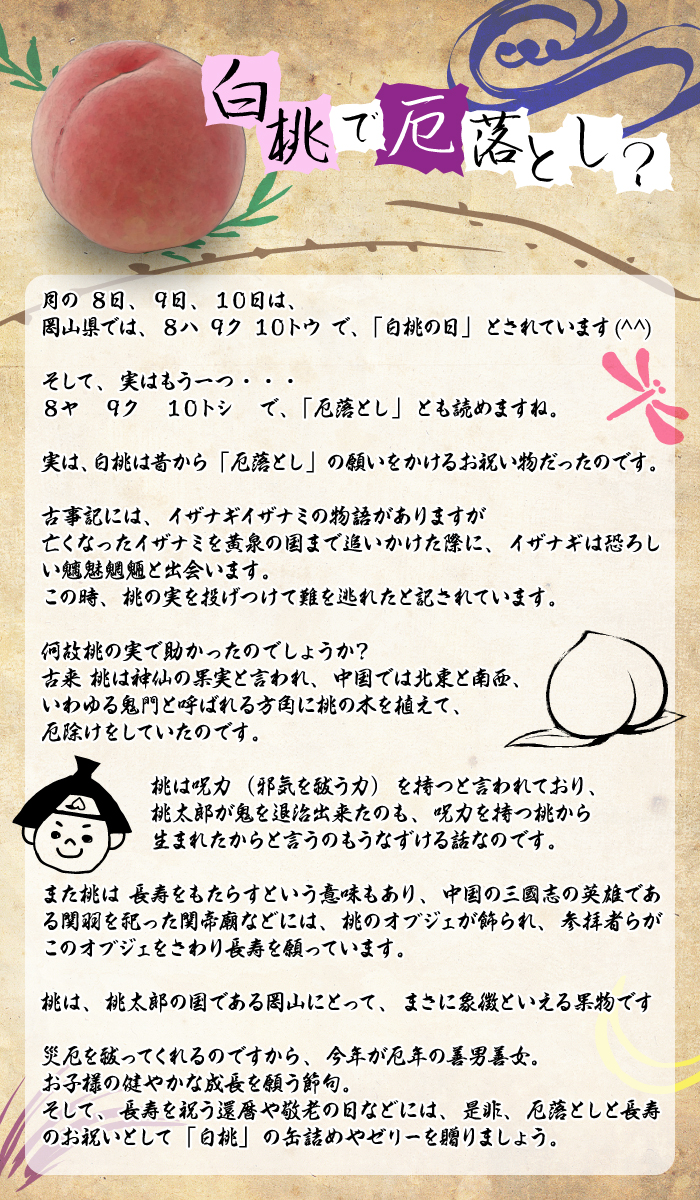 白桃で厄落とし?
月の 8日、9日、10日は、
岡山県では、8ハ 9ク 10トウ で、「白桃の日」とされています(^^)
そして、実はもう一つ・・・
8ヤ 9ク 10トシ で、「厄落とし」とも読めますね。
実は、白桃は昔から「厄落とし」の願いをかけるお祝い物だったのです。
古事記には、イザナギイザナミの物語がありますが
亡くなったイザナミを黄泉の国まで追いかけた際に、イザナギは恐ろし
い魑魅魍魎と出会います。
この時、桃の実を投げつけて難を逃れたと記されています。
何故桃の実で助かったのでしょうか?
古来 桃は神仙の果実と言われ、中国では北東と南西、
いわゆる鬼門と呼ばれる方角に桃の木を植えて、
厄除けをしていたのです。
桃は呪力(邪気を祓う力)を持つと言われており、
桃太郎が鬼を退治出来たのも、呪力を持つ桃から
生まれたからと言うのもうなずける話なのです。
また桃は 長寿をもたらすという意味もあり、中国の三國志の英雄であ
る関羽を祀った関帝廟などには、桃のオブジェが飾られ、参拝者らが
このオブジェをさわり長寿を願っています。
桃は、桃太郎の国である岡山にとって、まさに象徴といえる果物です
災厄を祓ってくれるのですから、今年が厄年の善男善女。
お子様の健やかな成長を願う節句。
そして、長寿を祝う還暦や敬老の日などには、是非、厄落としと長寿
のお祝いとして「白桃」の缶詰めやゼリーを贈りましょう。